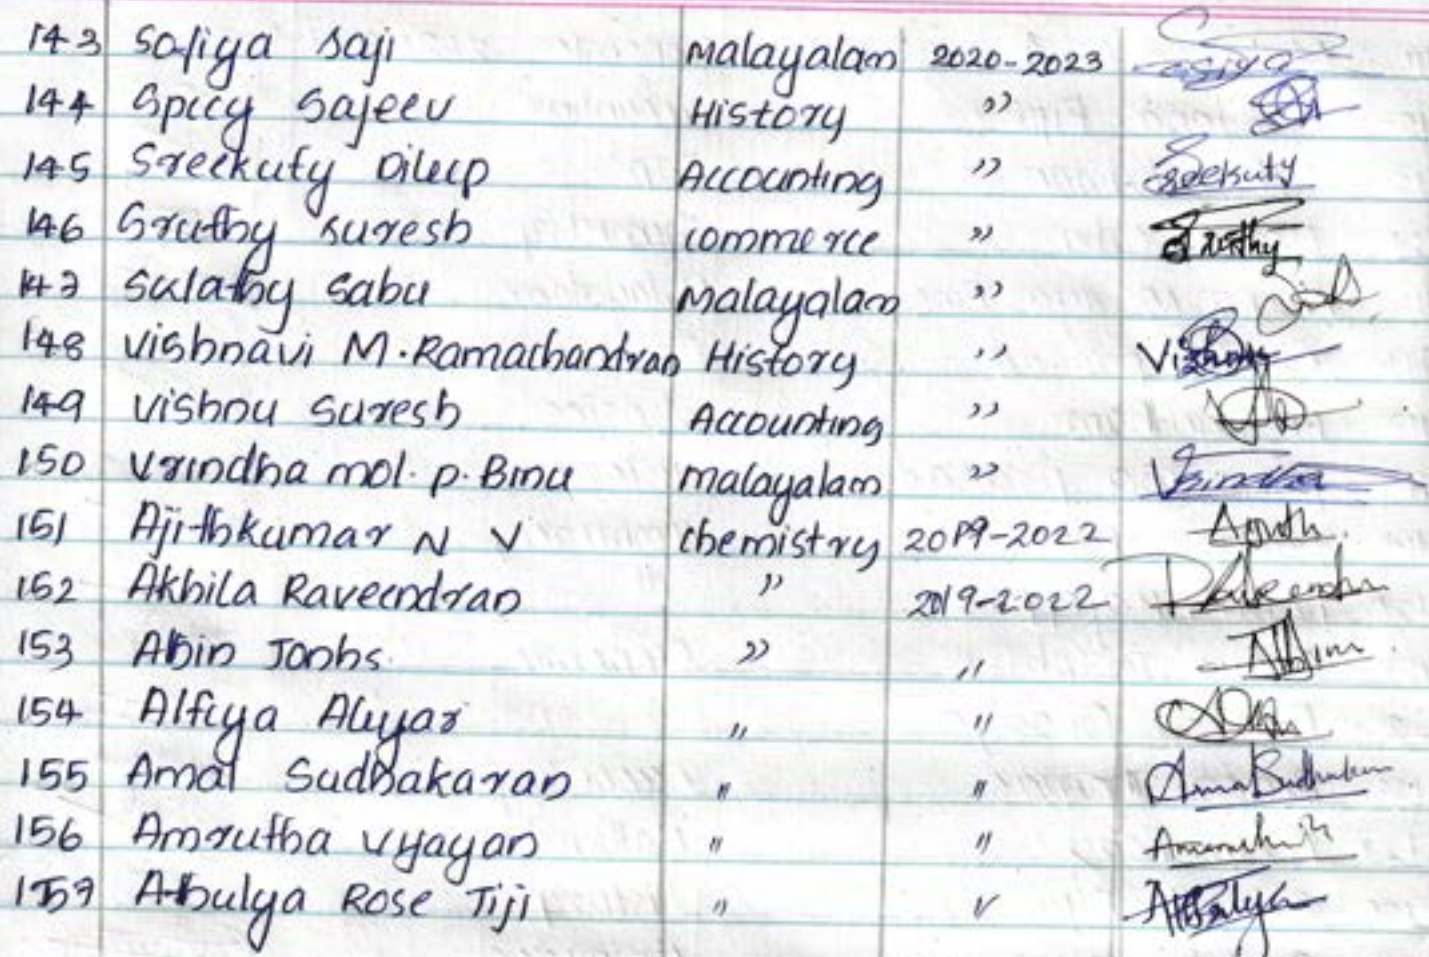 143 Safiya Saji Malayalam 2020-2023
144 Spicy Sajeev History ”
145 Sreekuty Dileep Accounting ” Sreekuty
146 Sruthy Suresh Commerce ” Sruthy
147 Sulathy Sabu Malayalam ”
148 Vishnavi M. Ramachandran History ”
149 Vishnu Suresh Accounting ”
150 Vrindha mol. P. Binu Malayalam ” Vrindha
151 Ajithkumar N V Chemistry 2019-2022
152 Akhila Raveendran ” 2019-2022
153 Albin Joohs. ” ”
154 Alfiya Aliyar ” ”
155 Amal Sudhakaran ” ”
156 Amrutha Vijayan ” ”
157 Athulya Rose Tiji ” ”